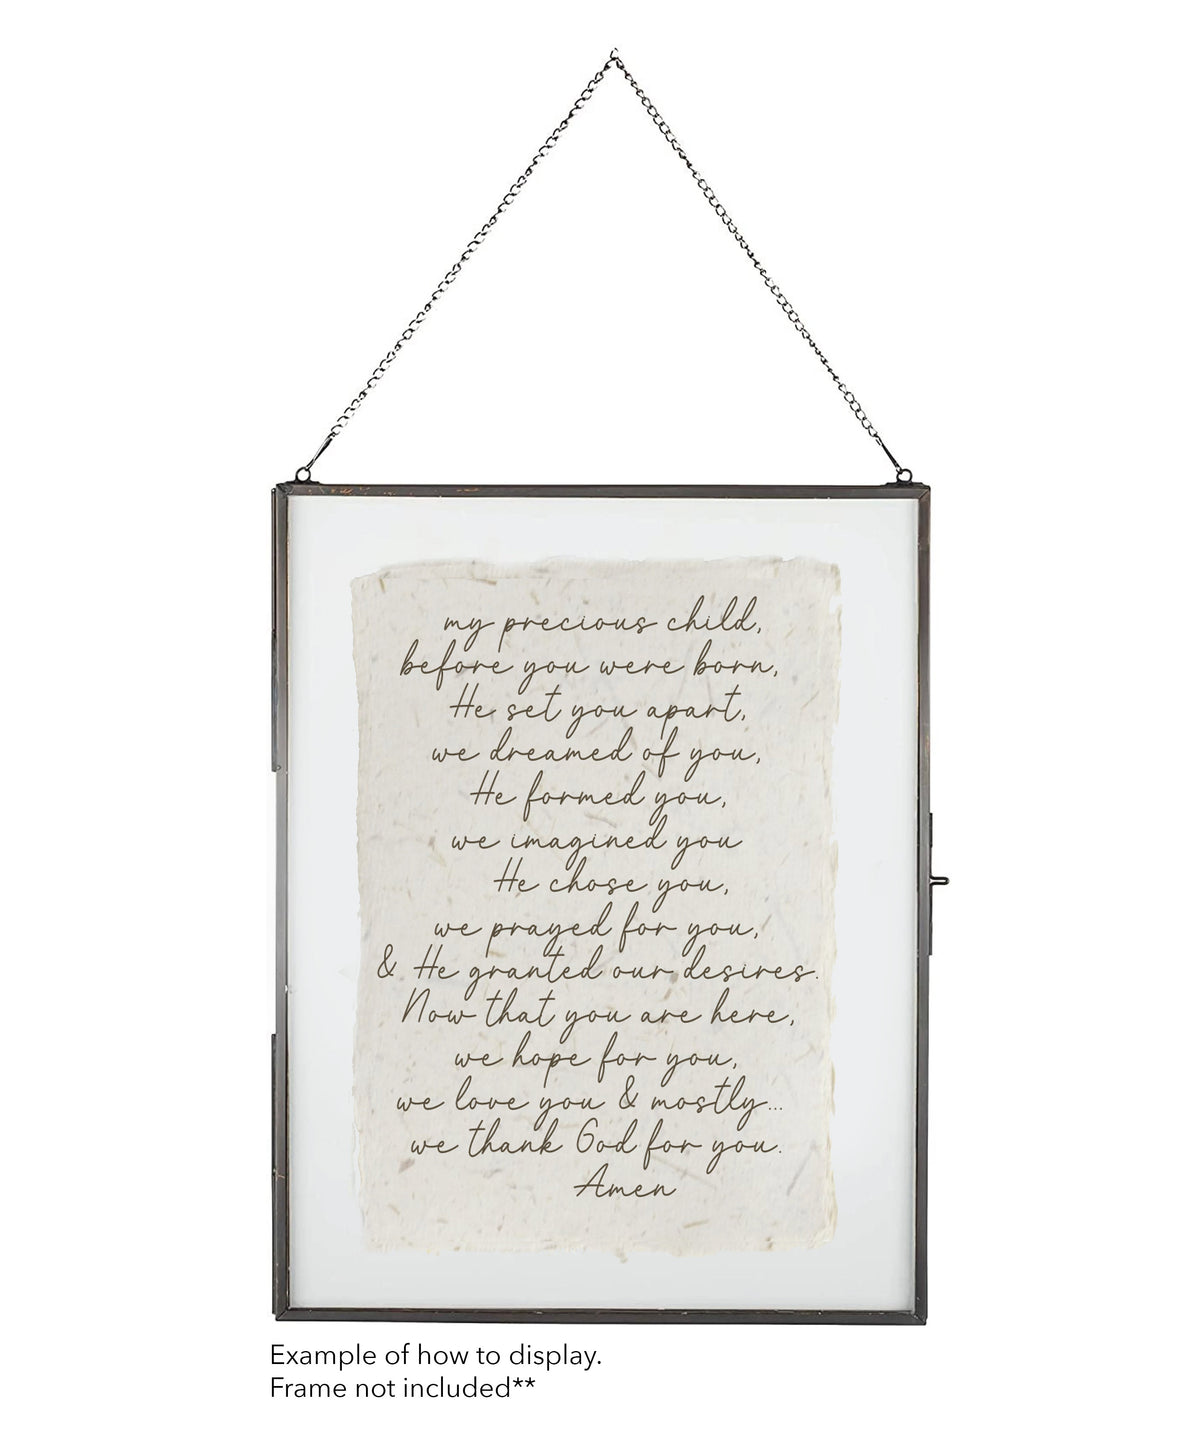 my precious child,
before you were born,
He set you apart,
we dreamed of you,
He formed you,
we imagined you
He chose you,
we prayed for you,
& He granted our desires.
Now that you are here,
we hope for you,
we love you & mostly...
we thank God for you.
Amen
Example of how to display.
Frame not included**